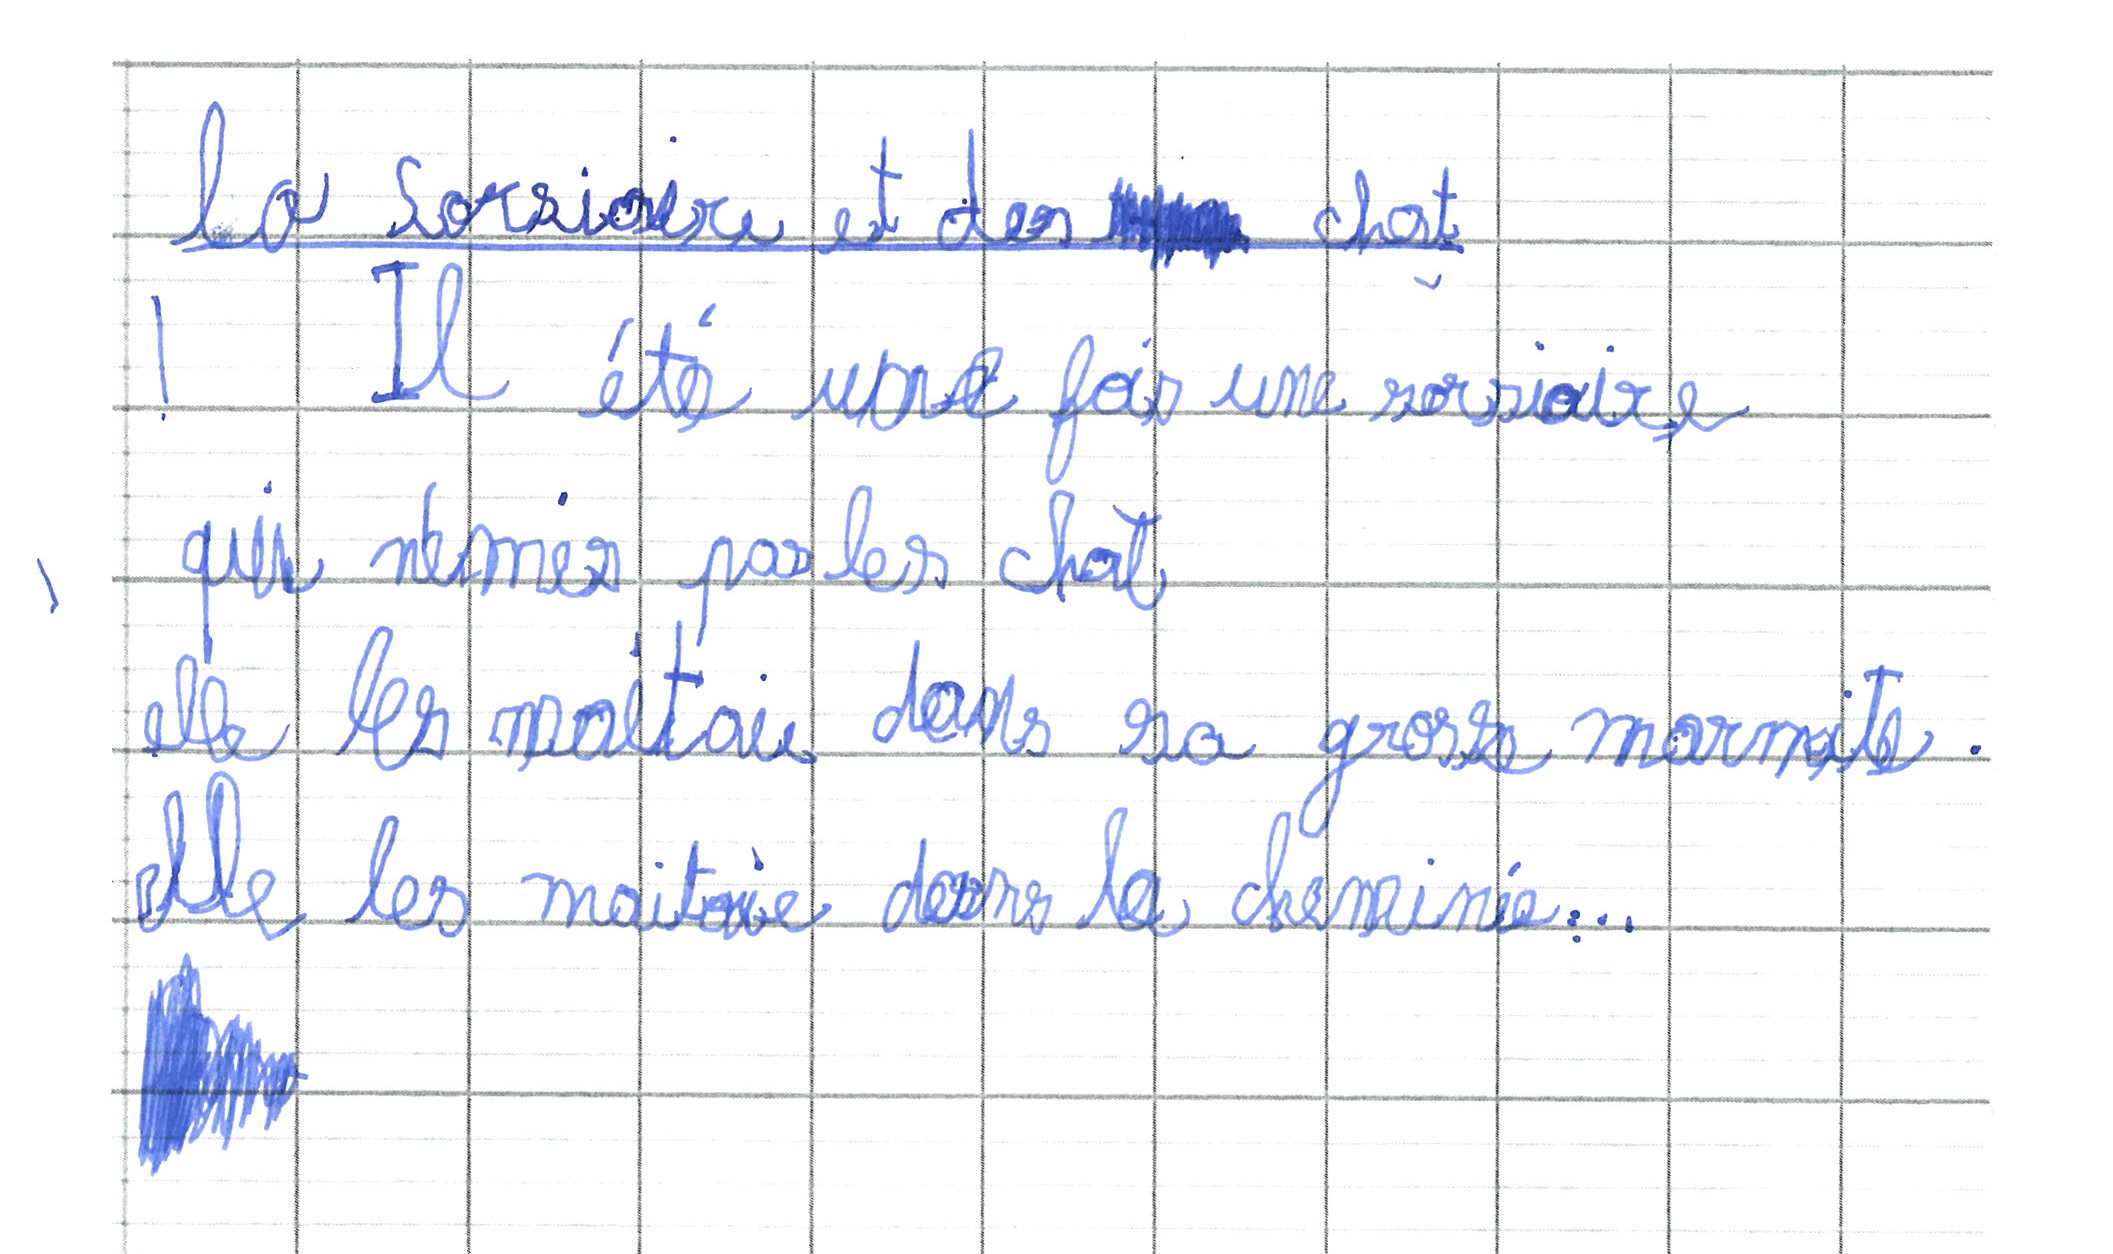 la sorsiaire et des chat
Il été une fois une sorsiaire
qui némes pas les chat
elle les maitaie dans sa grosse marmite.
elle les maitaie dans la cheminée...